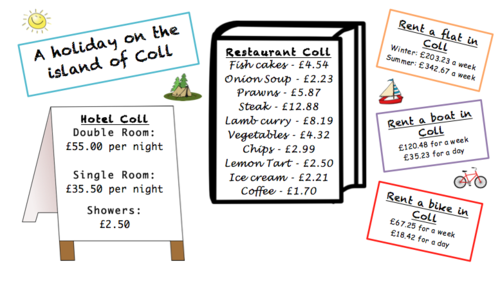 A holiday on the
island of Coll
Hotel Coll
Double Room:
£55.00 per night
Single Room:
£35.50 per night
Showers:
£2.50
Restaurant Coll
Fish cakes - £4.54
Onion Soup - £2.23
Prawns - £5.87
Steak - £12.88
Lamb curry - £8.19
Vegetables - £4.32
Chips - £2.99
Lemon Tart - £2.50
Ice cream - £2.21
Coffee - £1.70
Rent a flat in
Coll
Winter: £203.23 a week
Summer: £342.67 a week
Rent a boat in
Coll
£120.48 for a week
£35.23 for a day
Rent a bike in
Coll
£67.25 for a week
£18.42 for a day